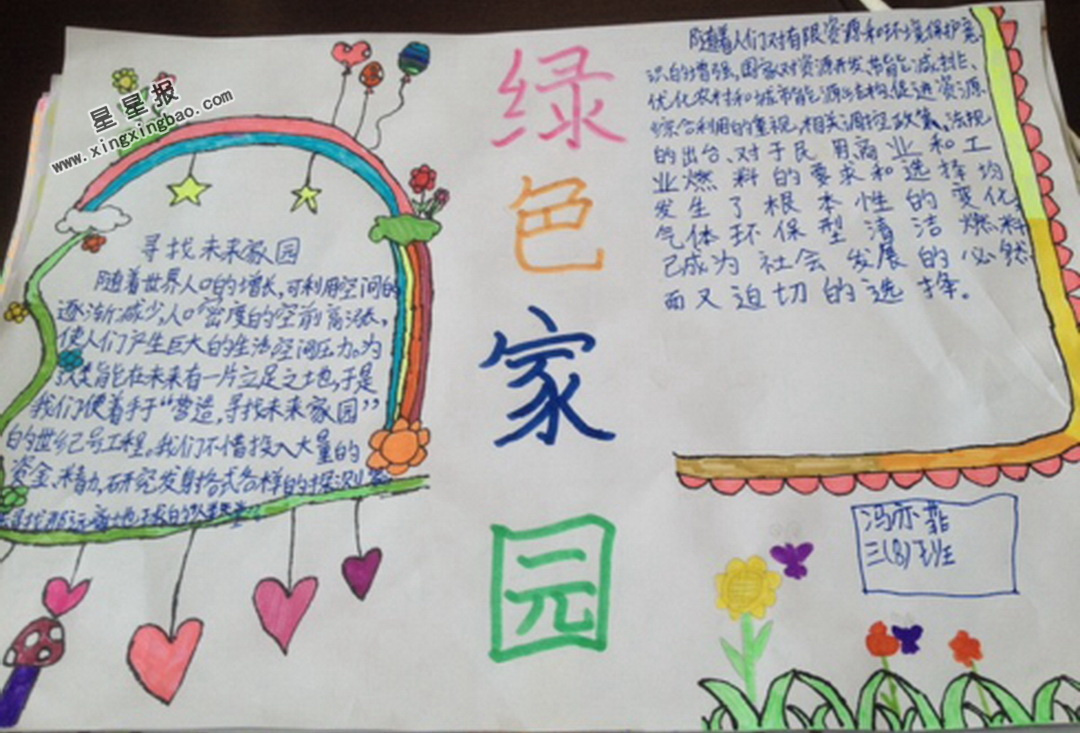 星星报
www.xingxingbao.com
绿色家园
寻找未来家园
随着世界人口的增长,可利用空间的
逐渐减少,人口密度的空前高涨,
使人们产生巨大的生活空间压力。为
能在未来有一片立足之地,于是
我们便着手于“营造,寻找未来家园”
的世纪号工程。我们不惜投入大量的
资金、精力,研究发射各式各样的探测
随着人们对有限资源和环境保护意
识的增强,国家对资源开发、节能减排、
优化农村和城市能源结构、促进资源
综合利用的重视,相关调控政策、法规
的出台、对于民用商业和工
业燃料的要求和选择均
发生了根本性的变化,
气体环保型清洁燃料
已成为社会发展的必然
而又迫切的选择。
冯亦菲
三(8)班